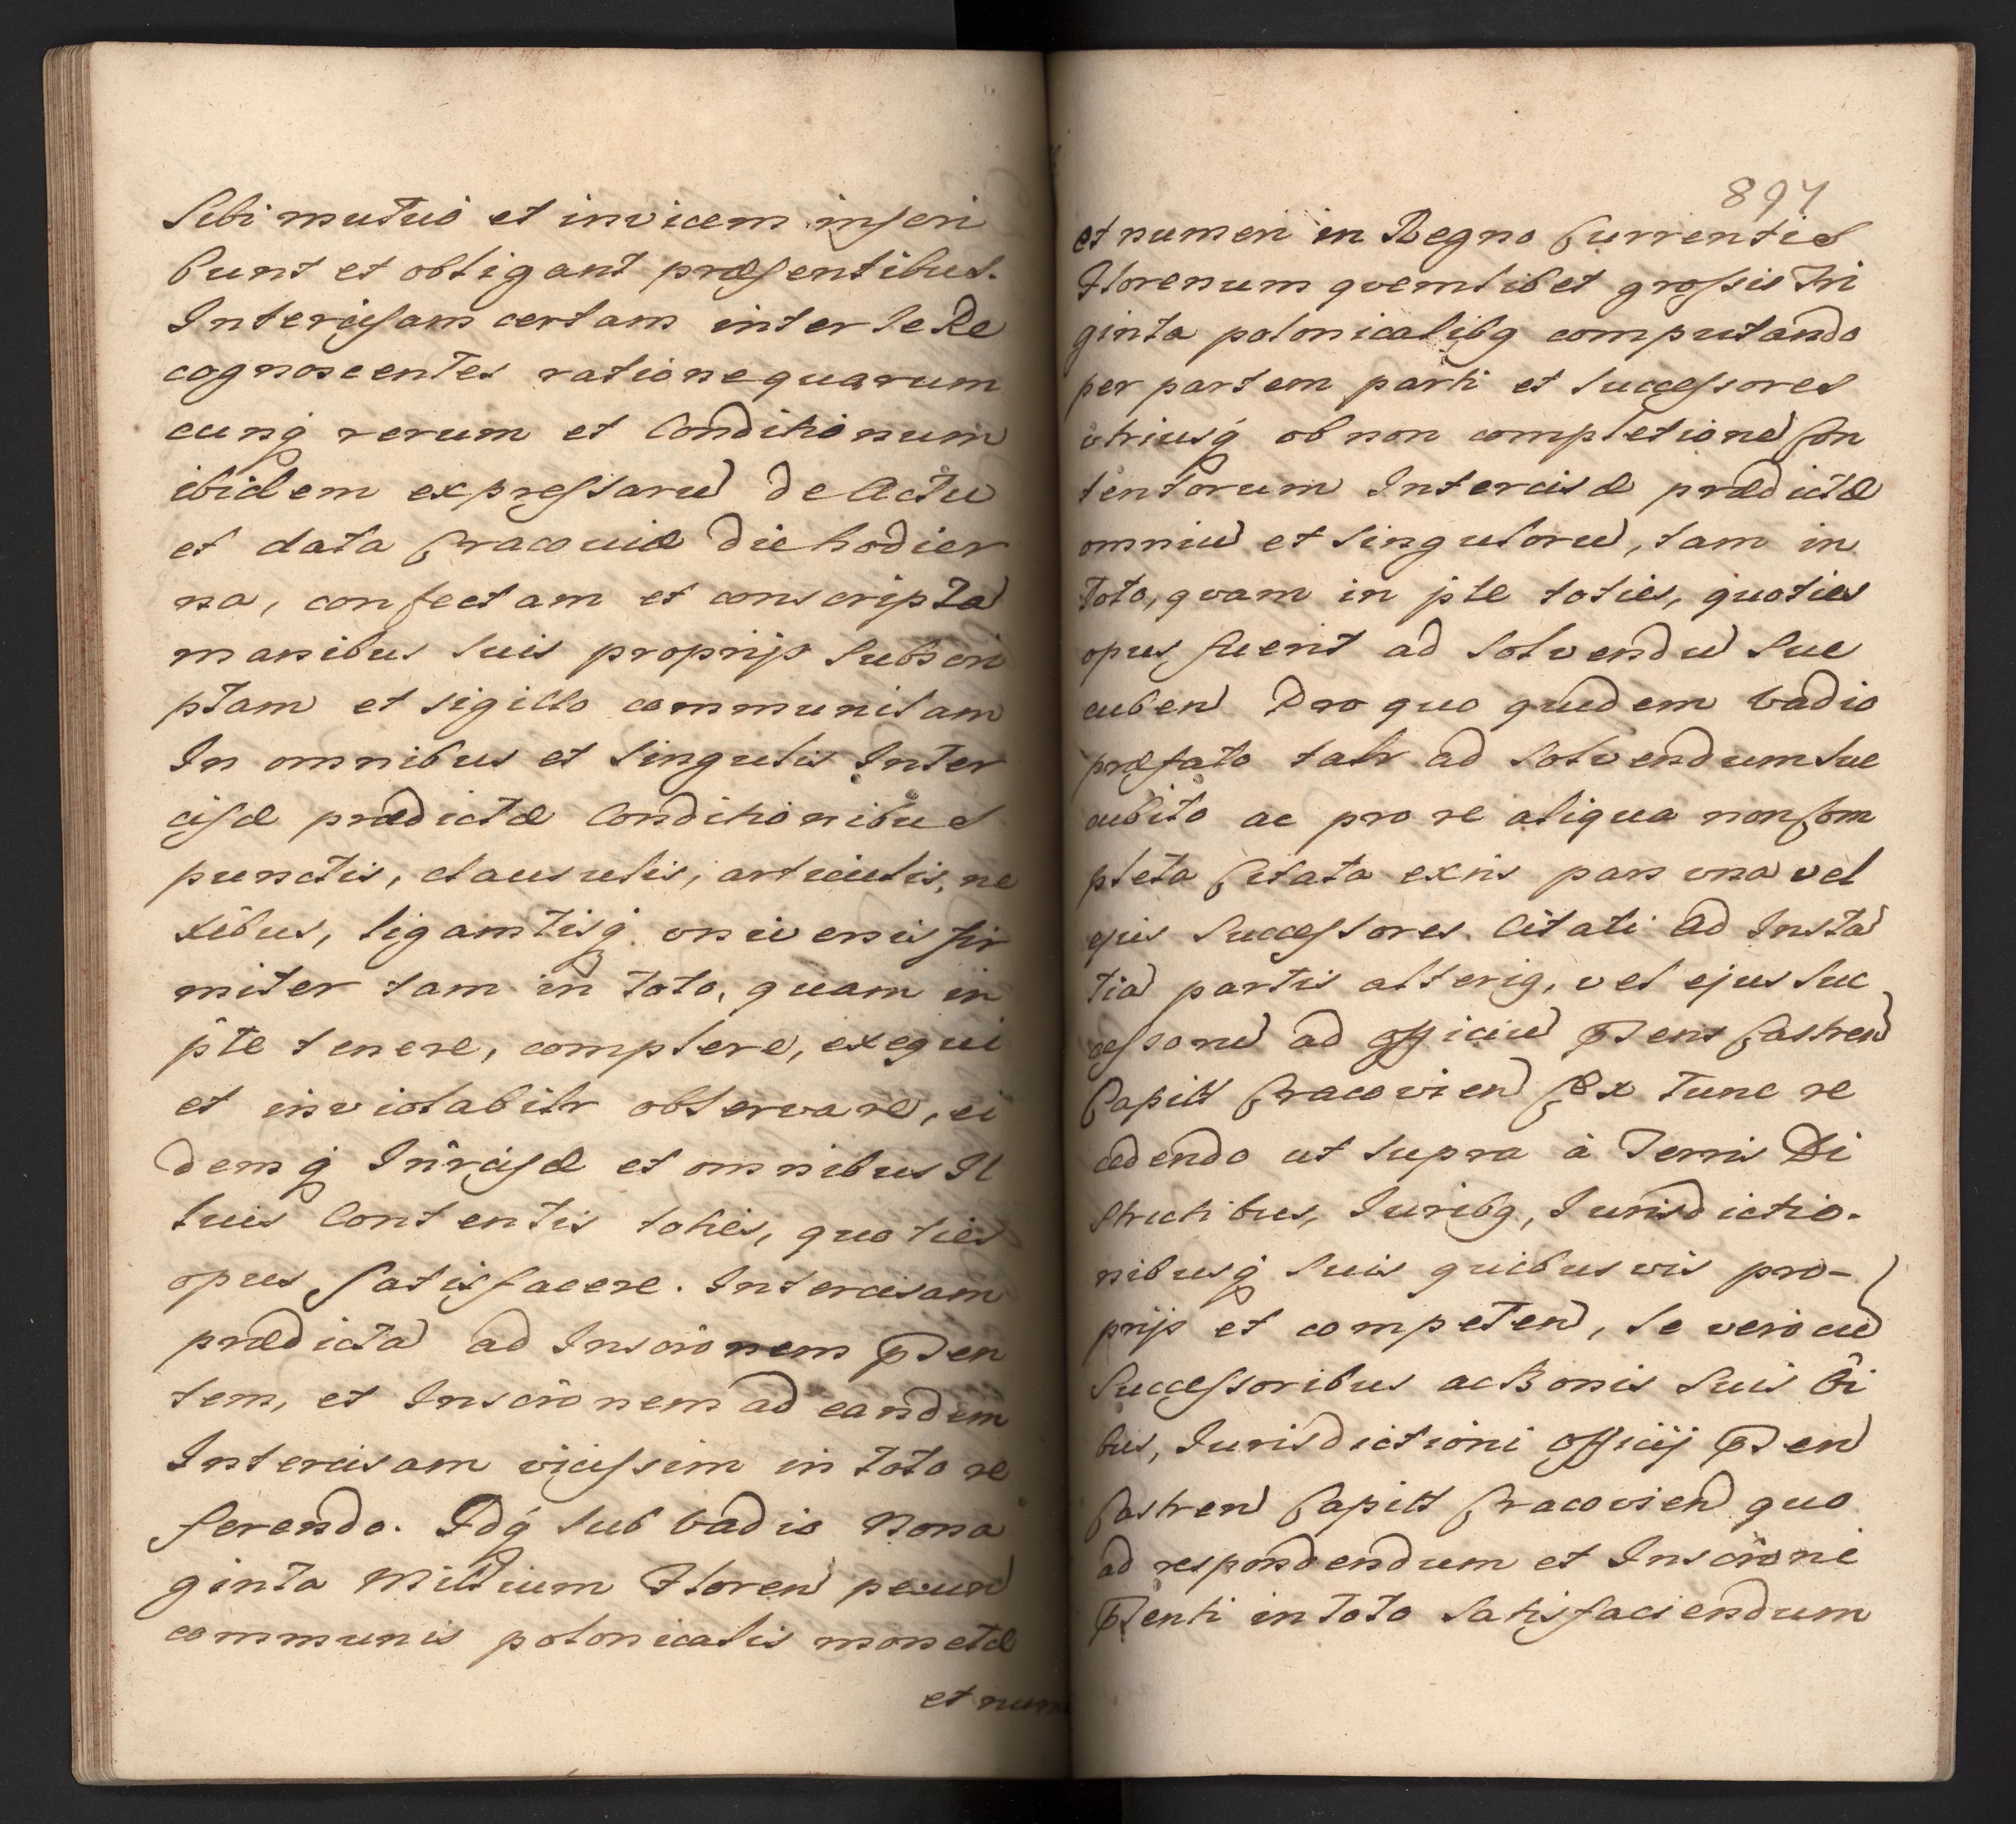 Sibi mutuo et invicem inscri
bunt et obligant præsentibus.
Intercisam certam inter se Re
cognoscentes ratione quarum
cunq rerum et Conditionum
ibidem expressarū de Actu
et data Cracoviæ die hodier
na, confectam et conscriptā
manibus suis proprijs subscri
ptam et sigillo communitam
In omnibus et singulis Inter
cisæ prædictæ Conditionibus
punctis, clausulis, articulis, ne
xibus, ligamtisq universis fir
miter tam in toto, quam in
pte tenere, complere, exequi
et inviolabilr observare, ei
demq Inrcisæ et omnibus Il
lius Contentis toties, quoties
opus satisfacere. Intercisam
prædictā ad Inscrōnem pñsen
tem, et Inscrōnem ad eandem
Intercisam vicissim in toto re
ferendo. Idq sub vadio Nona
ginta Millium Floren pecun
communis polonicalis monetæ
et num
897
et numeri in Regno Currentis
Florenum quemlibet grossis Tri
ginta polonicalibq computando
per partem parti et successores
utriusq ob non completionē Con
tentorum Intercisæ prædictæ
omniū et singulorū, tam in
toto, quam in pte toties, quoties
opus fuerit ad solvendū suc
cuben Pro quo quidem vadio
præfato talr ad solvendum suc
cubito ac pro re aliqua non Com
pleta Citata exnis pars una vel
ejus Successores. Citati ad Instā
tiā partis alteriq, vel ejus suc
cessorū ad officiū pñsens Castren
Capitt Cracovien Ex tunc re
cedendo ut supra à Terris Di
strictibus, Juribq, Jurisdictio-
nibusq suis quibusvis pro-
prijs et competen, se vero cū
Successoribus ac Bonis suis oi
bus, Jurisdictioni officij pñsen
Castren Capitt Cracovien quo
ad respondendum et Inscrōni
pñsenti in toto satisfaciendum